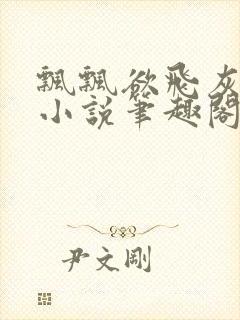 飄飄欲飛灰
小說筆趣閣
尹文剛